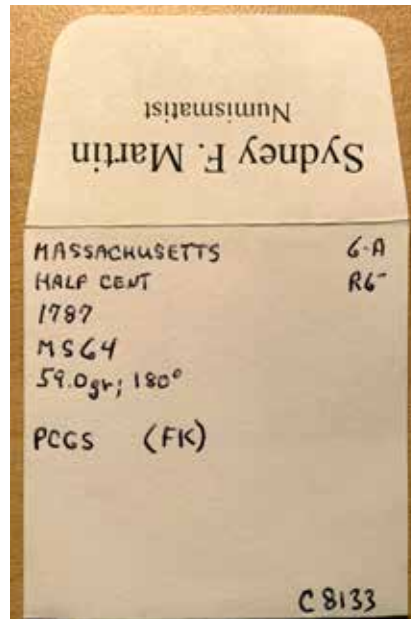 Sydney F. Martin
Numismatist
MASSACHUSETTS 6-A
HALF CENT R6-
1787
MS64
59.0gr; 180°
PCGS (FK)
C8133